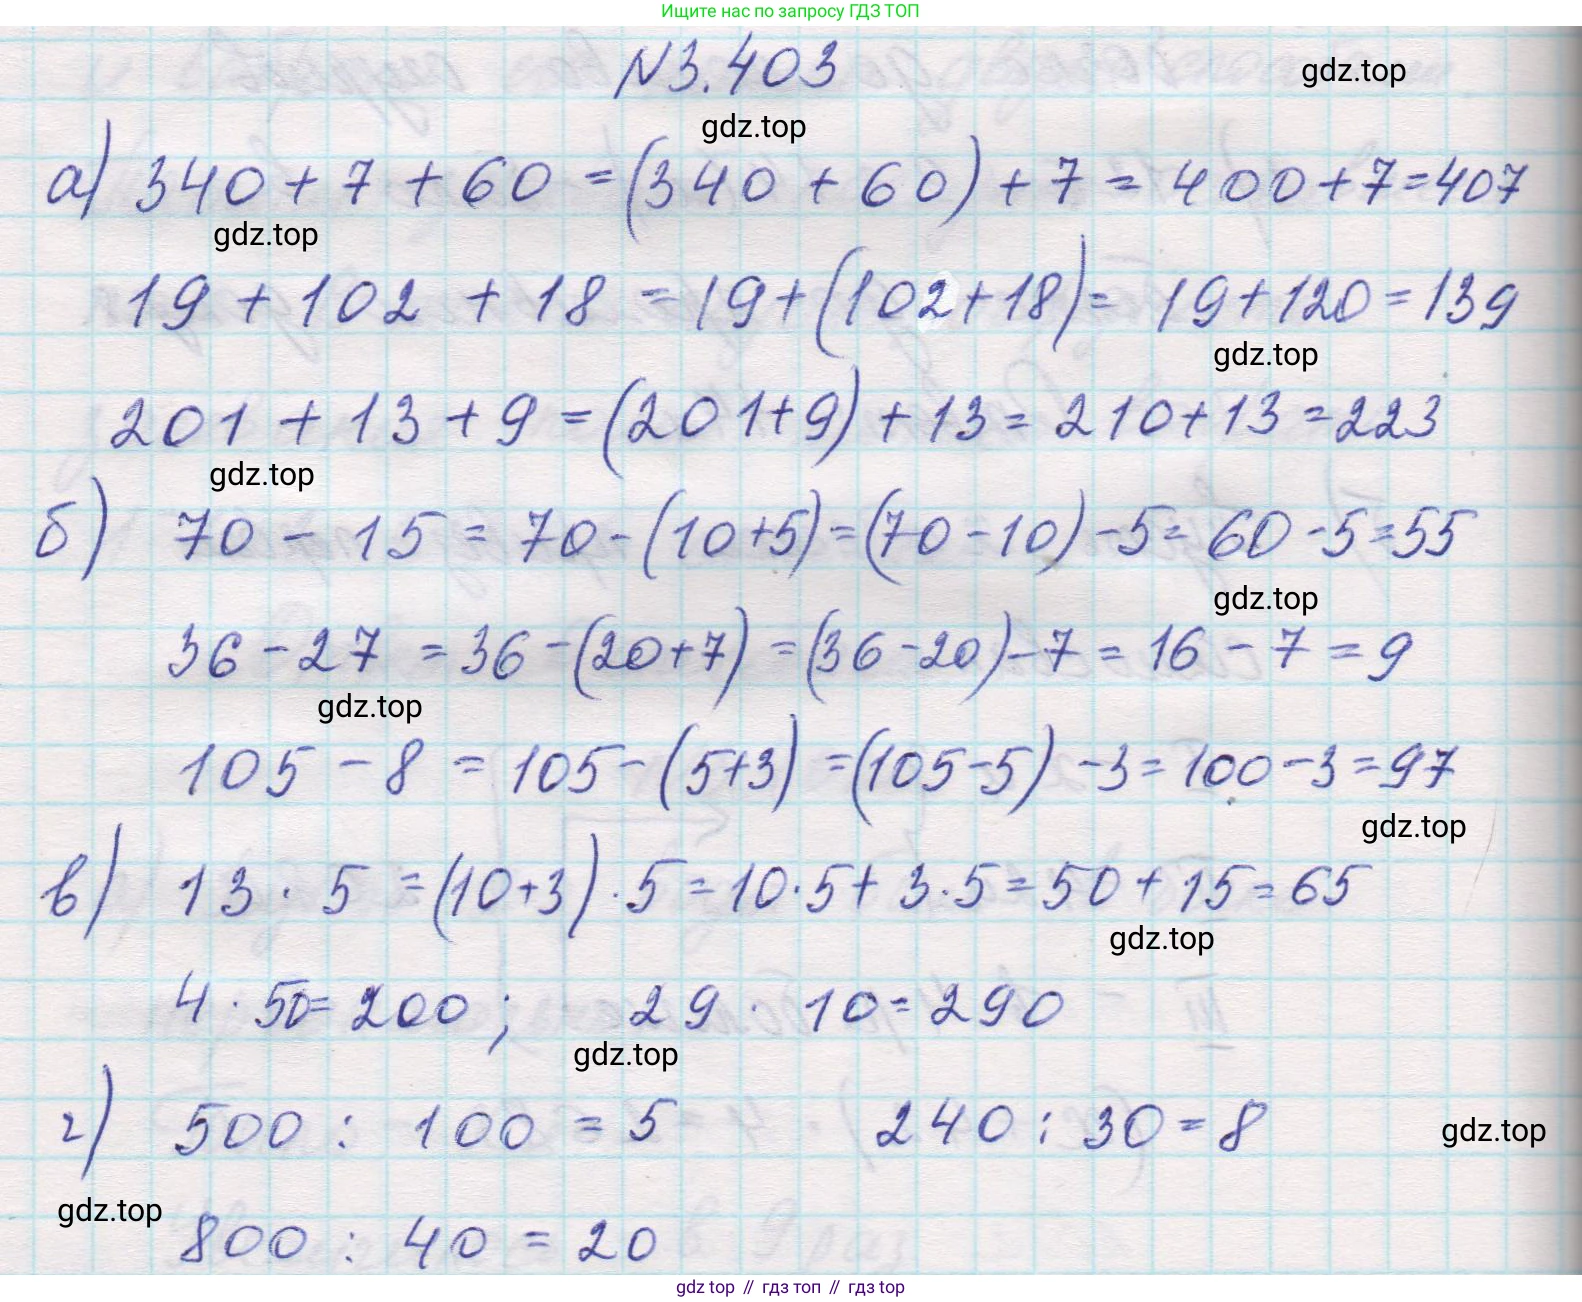 Ищите нас по запросу ГДЗ ТОП
N3.403
gdz.top
gdz.top
а) 340 + 7 + 60 = (340 + 60) + 7 = 400 + 7 = 407
gdz.top
19 + 102 + 18 = 19 + (102 + 18) = 19 + 120 = 139
gdz.top
201 + 13 + 9 = (201 + 9) + 13 = 210 + 13 = 223
gdz.top
б) 70 - 15 = 70 - (10 + 5) = (70 - 10) - 5 = 60 - 5 = 55
gdz.top
36 - 27 = 36 - (20 + 7) = (36 - 20) - 7 = 16 - 7 = 9
gdz.top
105 - 8 = 105 - (5 + 3) = (105 - 5) - 3 = 100 - 3 = 97
gdz.top
в) 13 · 5 = (10 + 3) · 5 = 10 · 5 + 3 · 5 = 50 + 15 = 65
gdz.top
4 · 50 = 200 ; 29 · 10 = 290
gdz.top
г) 500 : 100 = 5 240 : 30 = 8
gdz.top
gdz.top
800 : 40 = 20
gdz top // гдз топ // гдз top